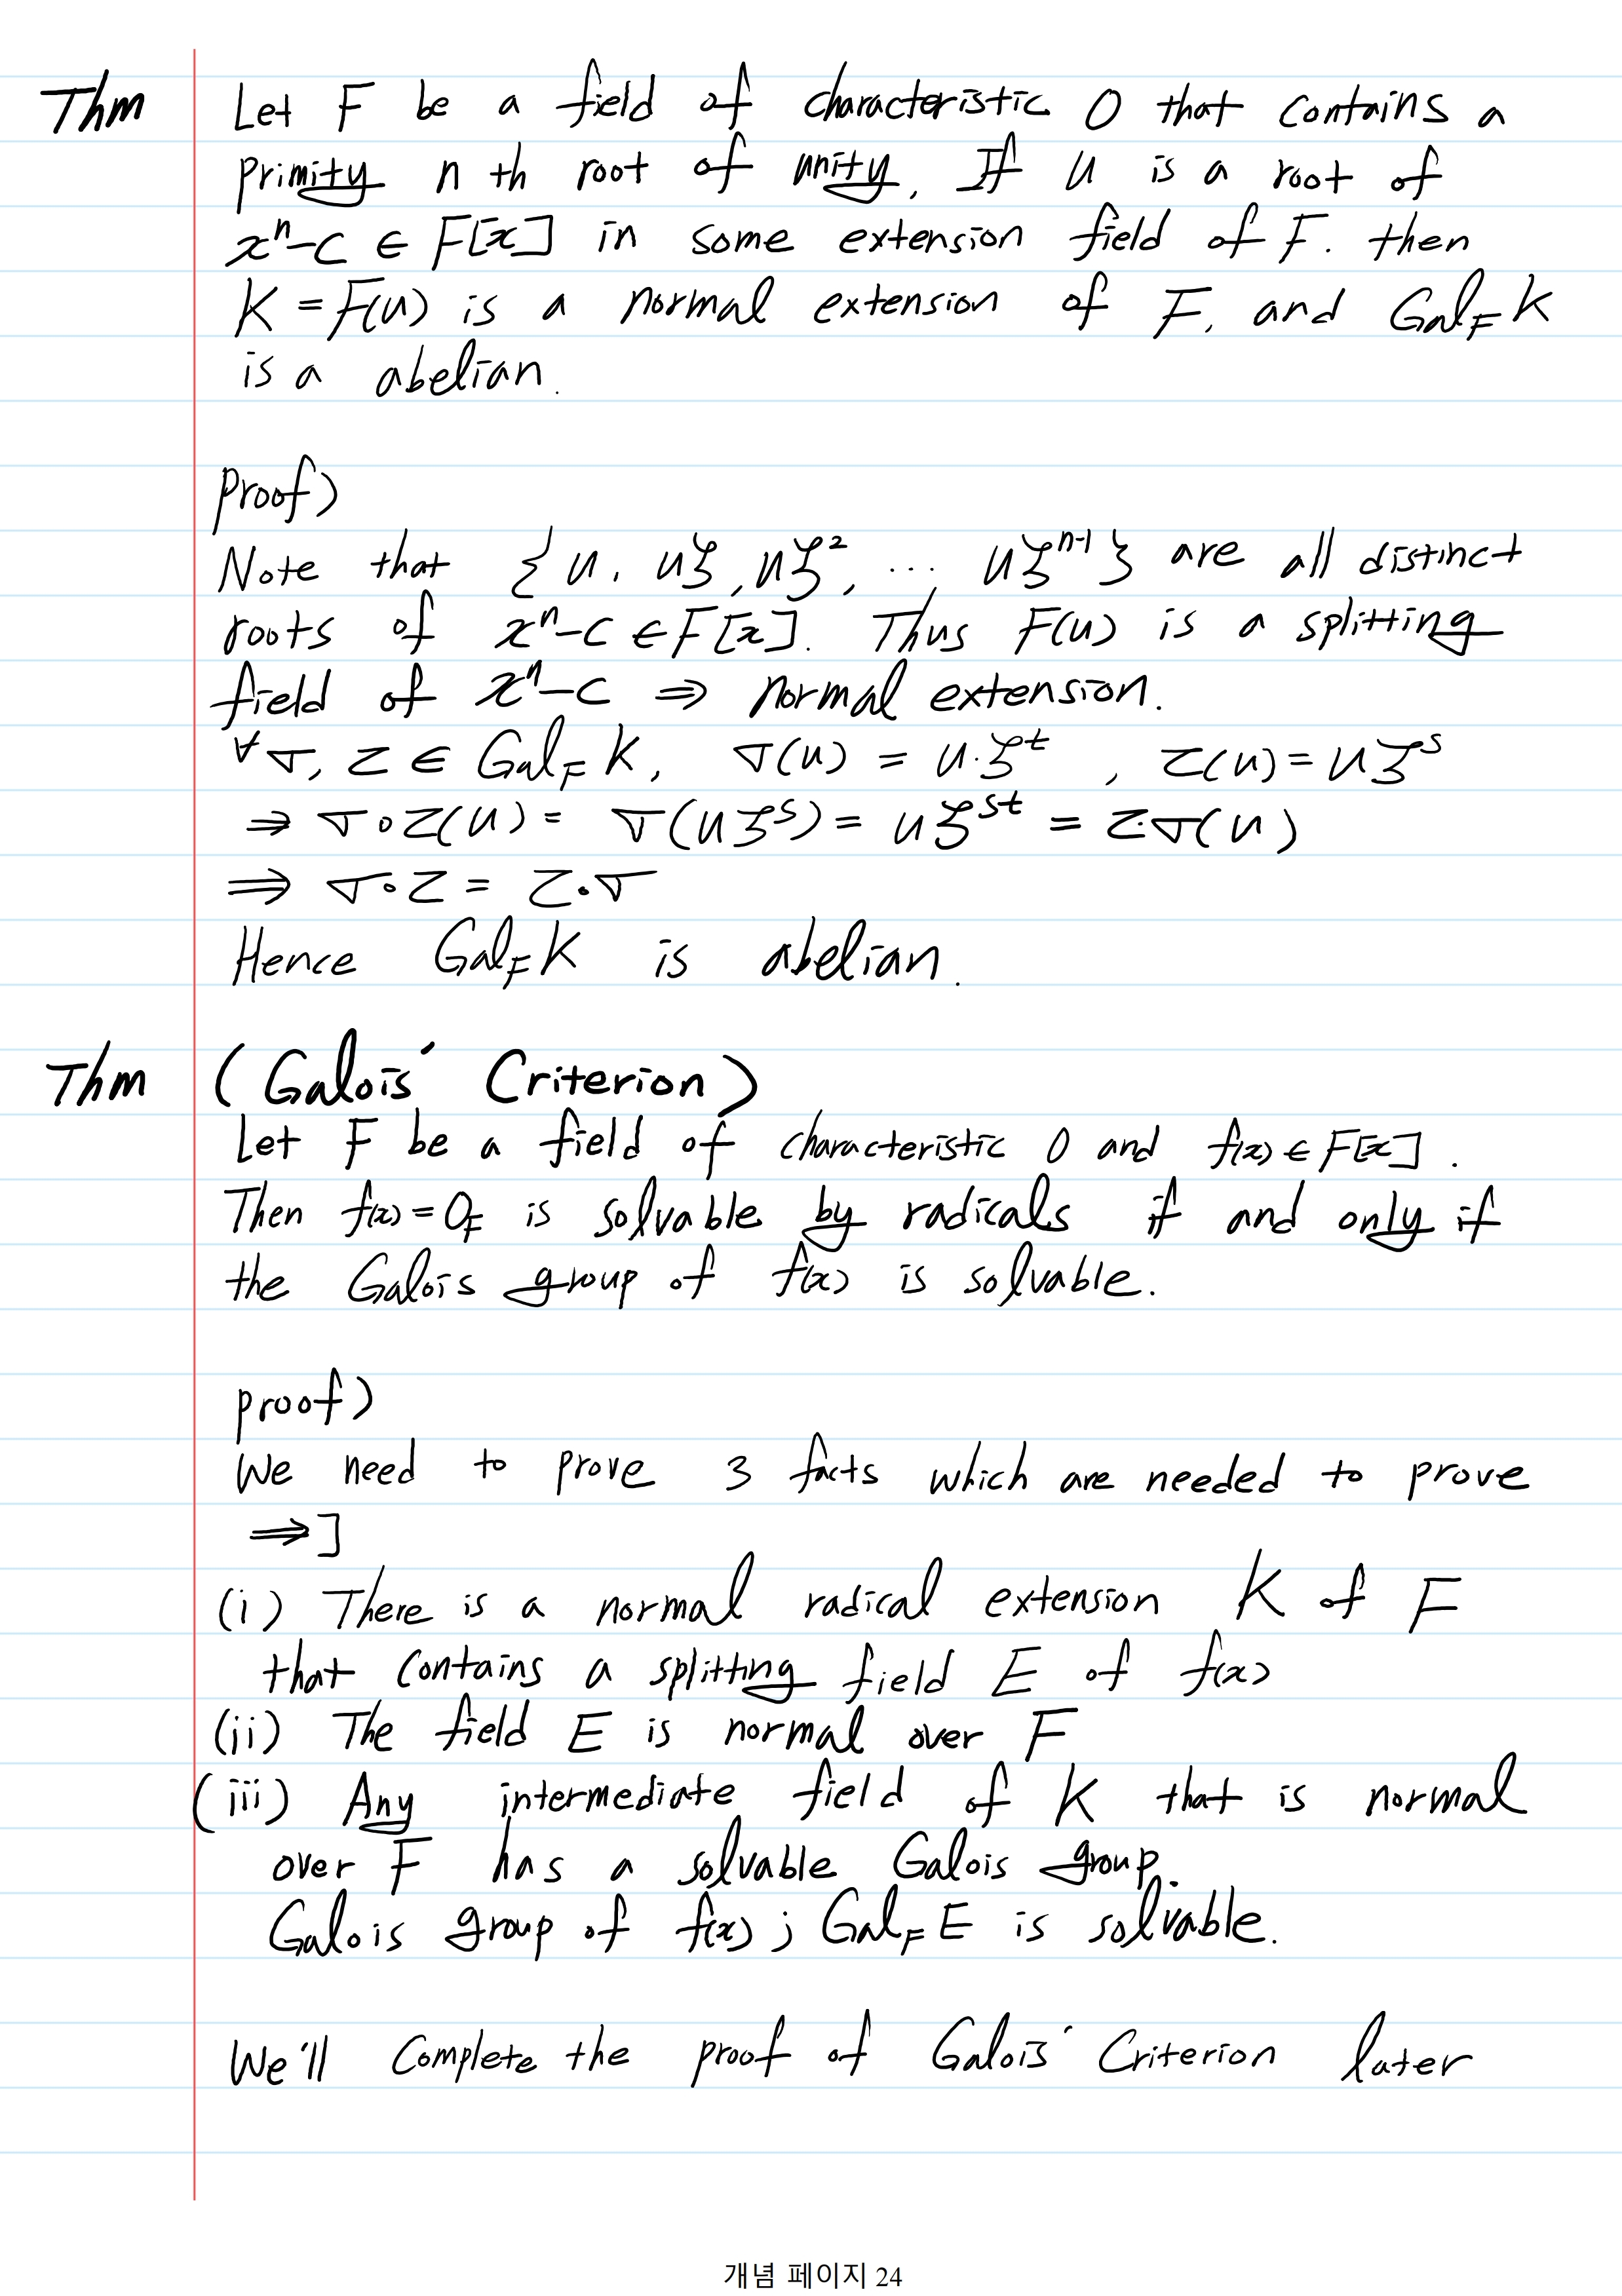 Thm Let F be a field of characteristic 0 that contains a
primity n th root of unity. If u is a root of
xⁿ-c ∈ F[x] in some extension field of F. then
K = F(u) is a normal extension of F, and Gal_F K
is a abelian.
proof)
Note that {u, uζ, uζ², ... uζⁿ⁻¹} are all distinct
roots of xⁿ-c ∈ F[x]. Thus F(u) is a splitting
field of xⁿ-c ⇒ normal extension.
∀σ, τ ∈ Gal_F K, σ(u) = u·ζᵗ, τ(u) = uζˢ
⇒ σ∘τ(u) = σ(uζˢ) = uζˢᵗ = τ·σ(u)
⇒ σ∘τ = τ∘σ
Hence Gal_F K is abelian.
Thm (Galois' Criterion)
Let F be a field of characteristic 0 and f(x) ∈ F[x].
Then f(x) = 0_F is solvable by radicals if and only if
the Galois group of f(x) is solvable.
proof)
We need to prove 3 facts which are needed to prove
⇒]
(i) There is a normal radical extension K of F
that contains a splitting field E of f(x)
(ii) The field E is normal over F
(iii) Any intermediate field of K that is normal
over F has a solvable Galois group.
Galois group of f(x) ; Gal_F E is solvable.
We'll complete the proof of Galois' Criterion later
개념 페이지 24